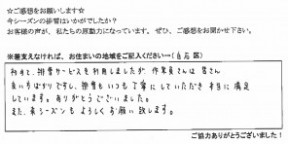 ☆ご感想をお願いします☆
今シーズンの排雪はいかがでしたか？
お客様の声が、私たちの原動力になっています。ぜひ、ご感想をお聞かせ下さい。
※差支えなければ、お住まいの地域をご記入ください→（白石区）
初めて、排雪サービスを利用しましたが、作業員さんは皆さん
良い方ばかりですし、排雪もいつも丁寧にしていただき本当に満足
しています。ありがとうございました。
また、来シーズンもよろしくお願い致します。
ご協力ありがとうございました！